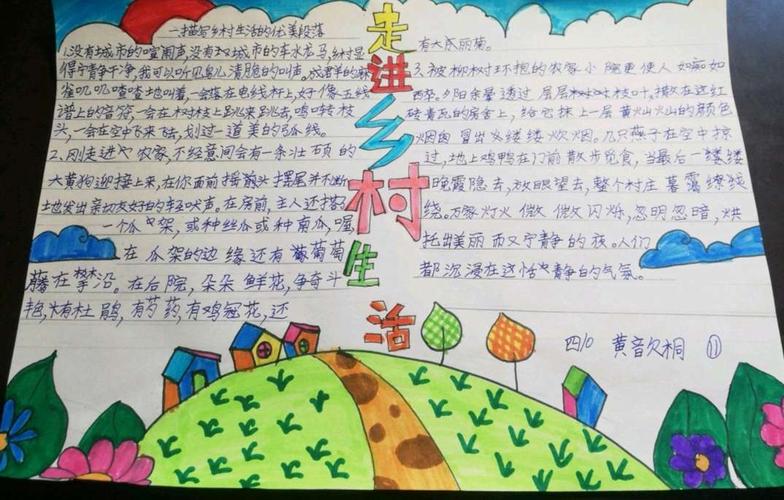 走进乡村生活
一描写乡村生活的优美段落
1.没有城市的喧闹声,没有城市的车水龙马,乡村显
得宁静干净,我可以听见鸟儿清脆的叫声,成群的麻
雀叽叽喳喳地叫着,一会落在电线杆上,好像五线
谱上的音符,一会在树枝上跳来跳去,鸣转枝
头,一会在空中飞来飞去,划过一道美的弧线。
2.刚走进农家,不经意间会有一条壮硕的
大黄狗迎接上来,在你面前摇头摆尾并不断
地发出亲切友好的轻吠声。在房前,主人还搭
一个瓜架,或种丝瓜或种南瓜,喔
在瓜架的边缘还有葡萄
藤在攀沿。在后院,朵朵鲜花,争奇斗
艳,有杜鹃,有芍药,有鸡冠花,还
有大瓜丽菊。
3.被柳树环抱的农家小院更使人如痴如
醉。夕阳余晕透过层层树枝叶,撒在这红
砖青瓦的房舍上,给它抹上一层黄灿灿的颜色
烟囱冒出缕缕炊烟。几只燕子在空中掠
过,地上鸡鸭在门前散步觅食,当最后一缕缕
晚霞隐去,放眼望去,整个村庄暮霭缭
绕。万家灯火微微闪烁,忽明忽暗,烘
托出美丽而又宁静的夜。人们
都沉浸在这恬静的气氛。
四10 黄音欠桐 ⑪